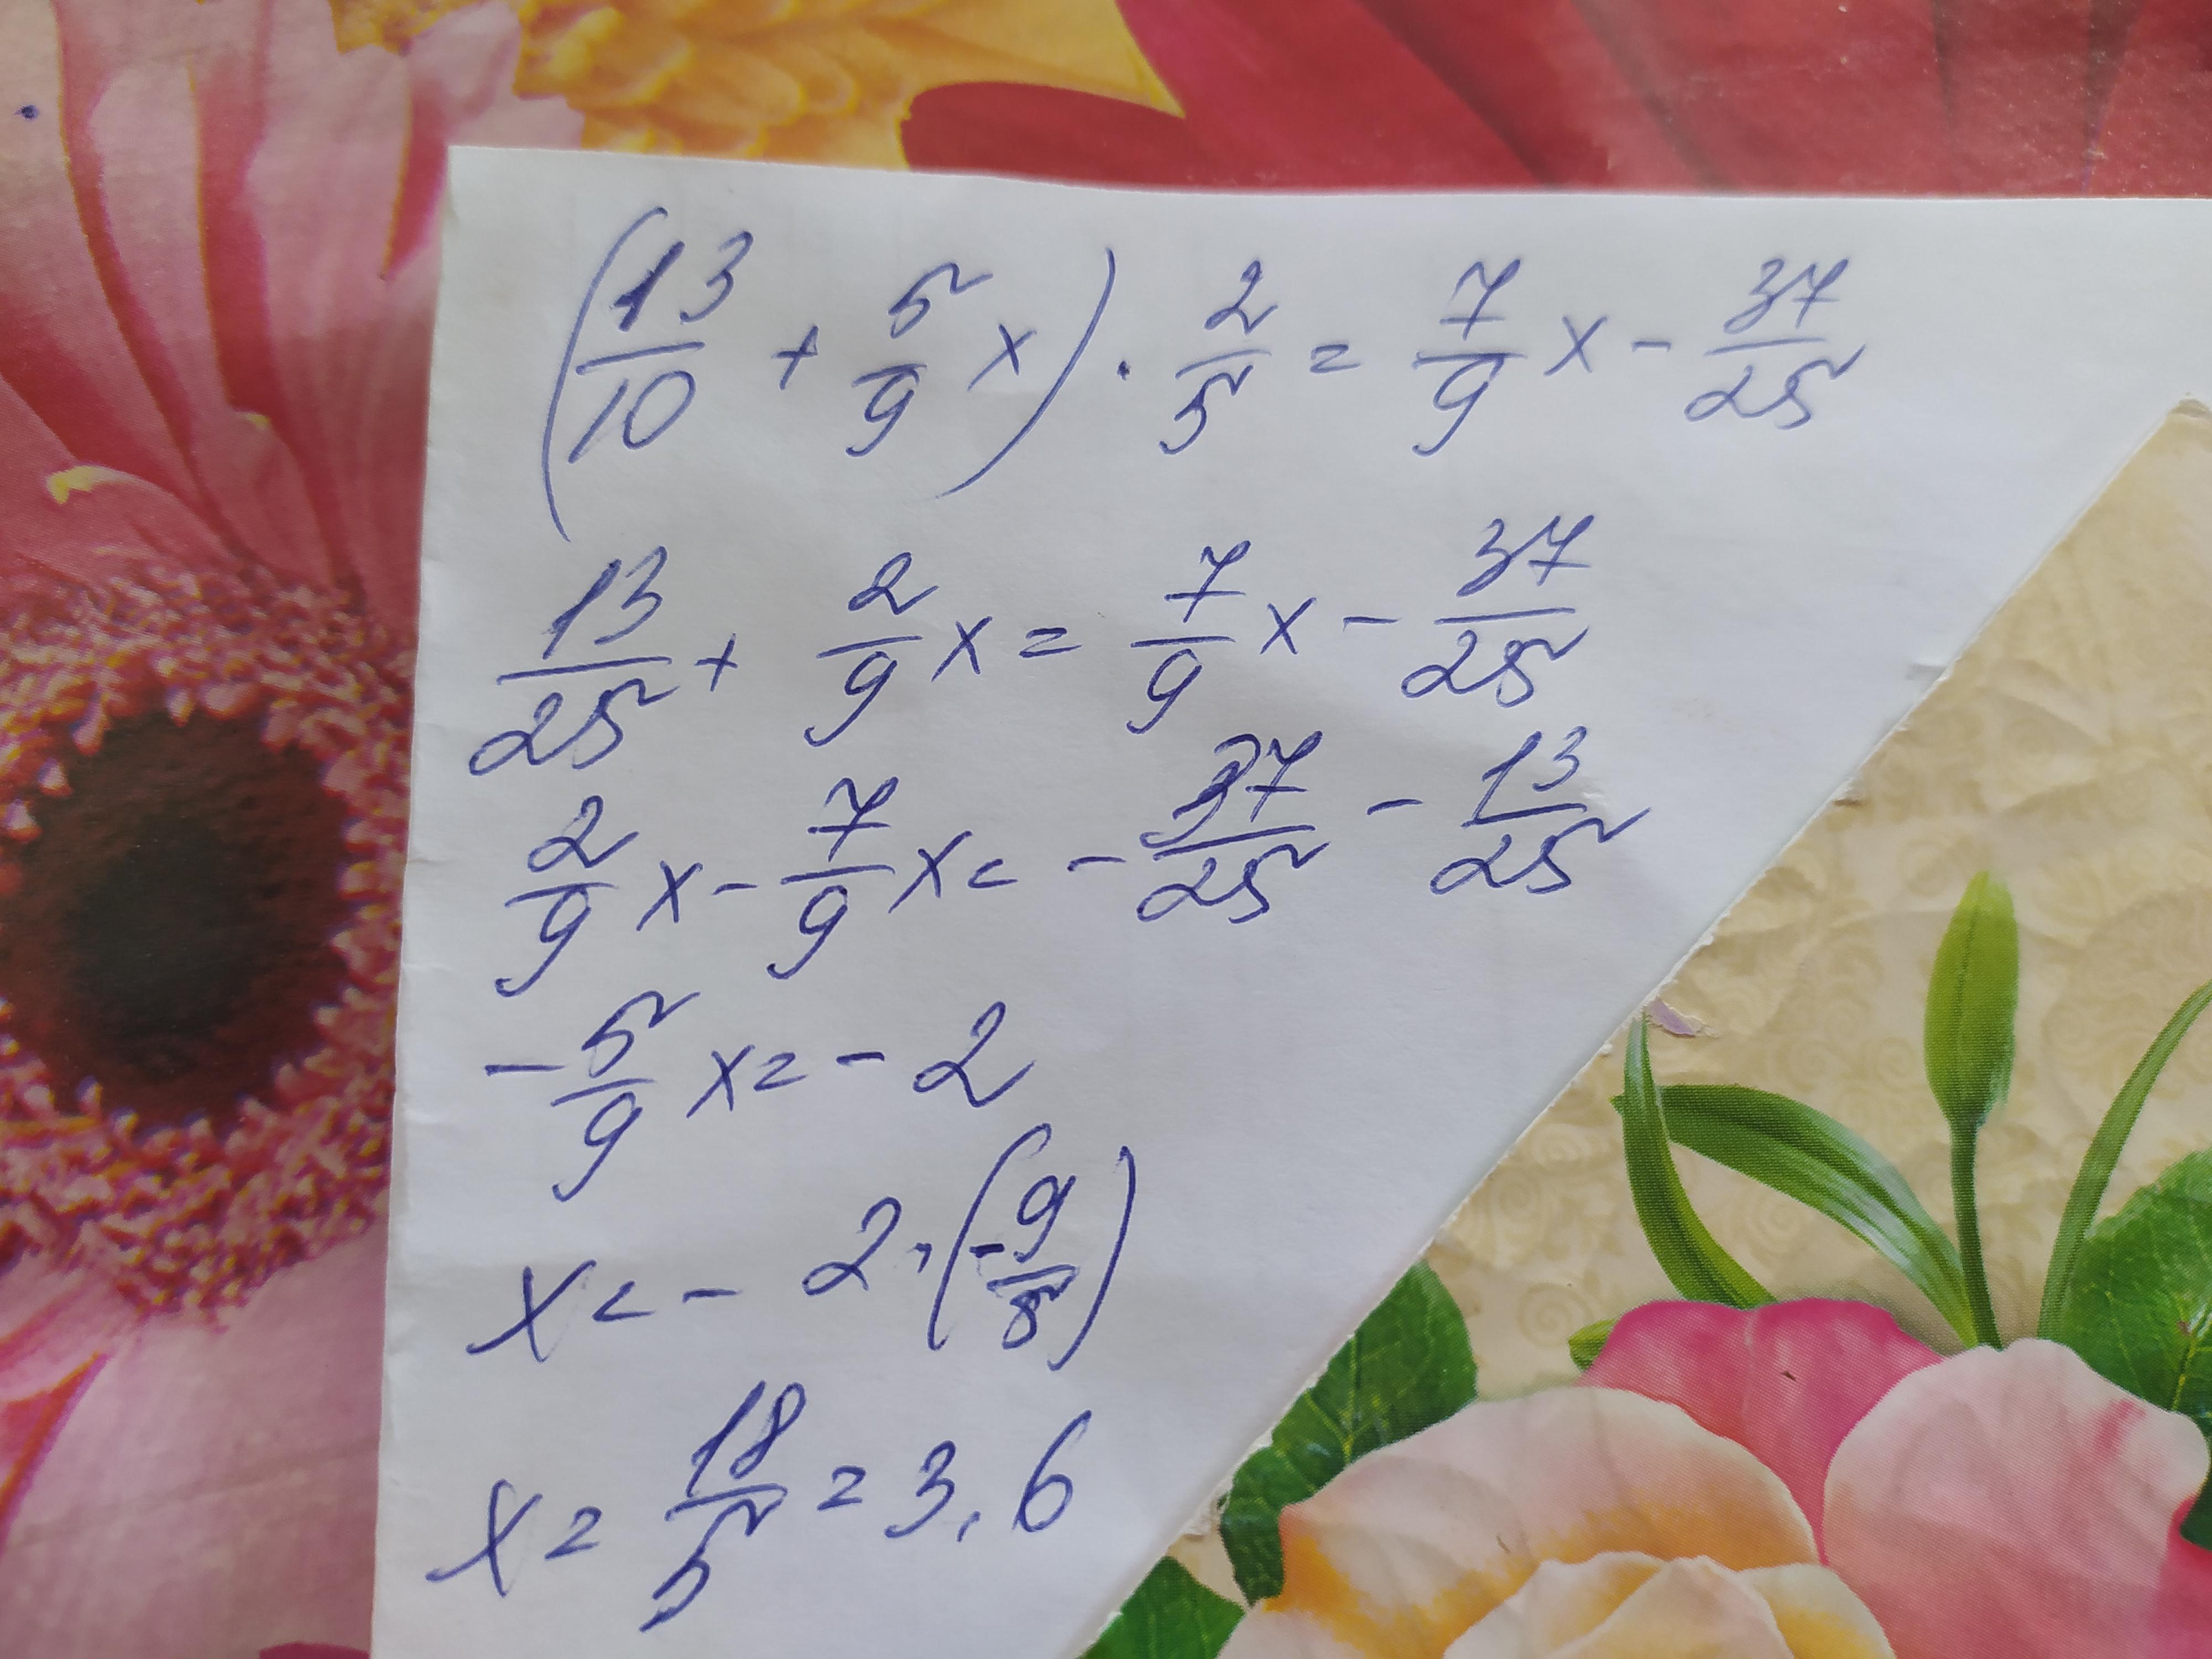 (13/10 + 5/9 x) · 2/5 = 7/9 x - 37/25
13/25 + 2/9 x = 7/9 x - 37/25
2/9 x - 7/9 x = - 37/25 - 13/25
- 5/9 x = - 2
x = - 2 · (- 9/5)
x = 18/5 = 3,6